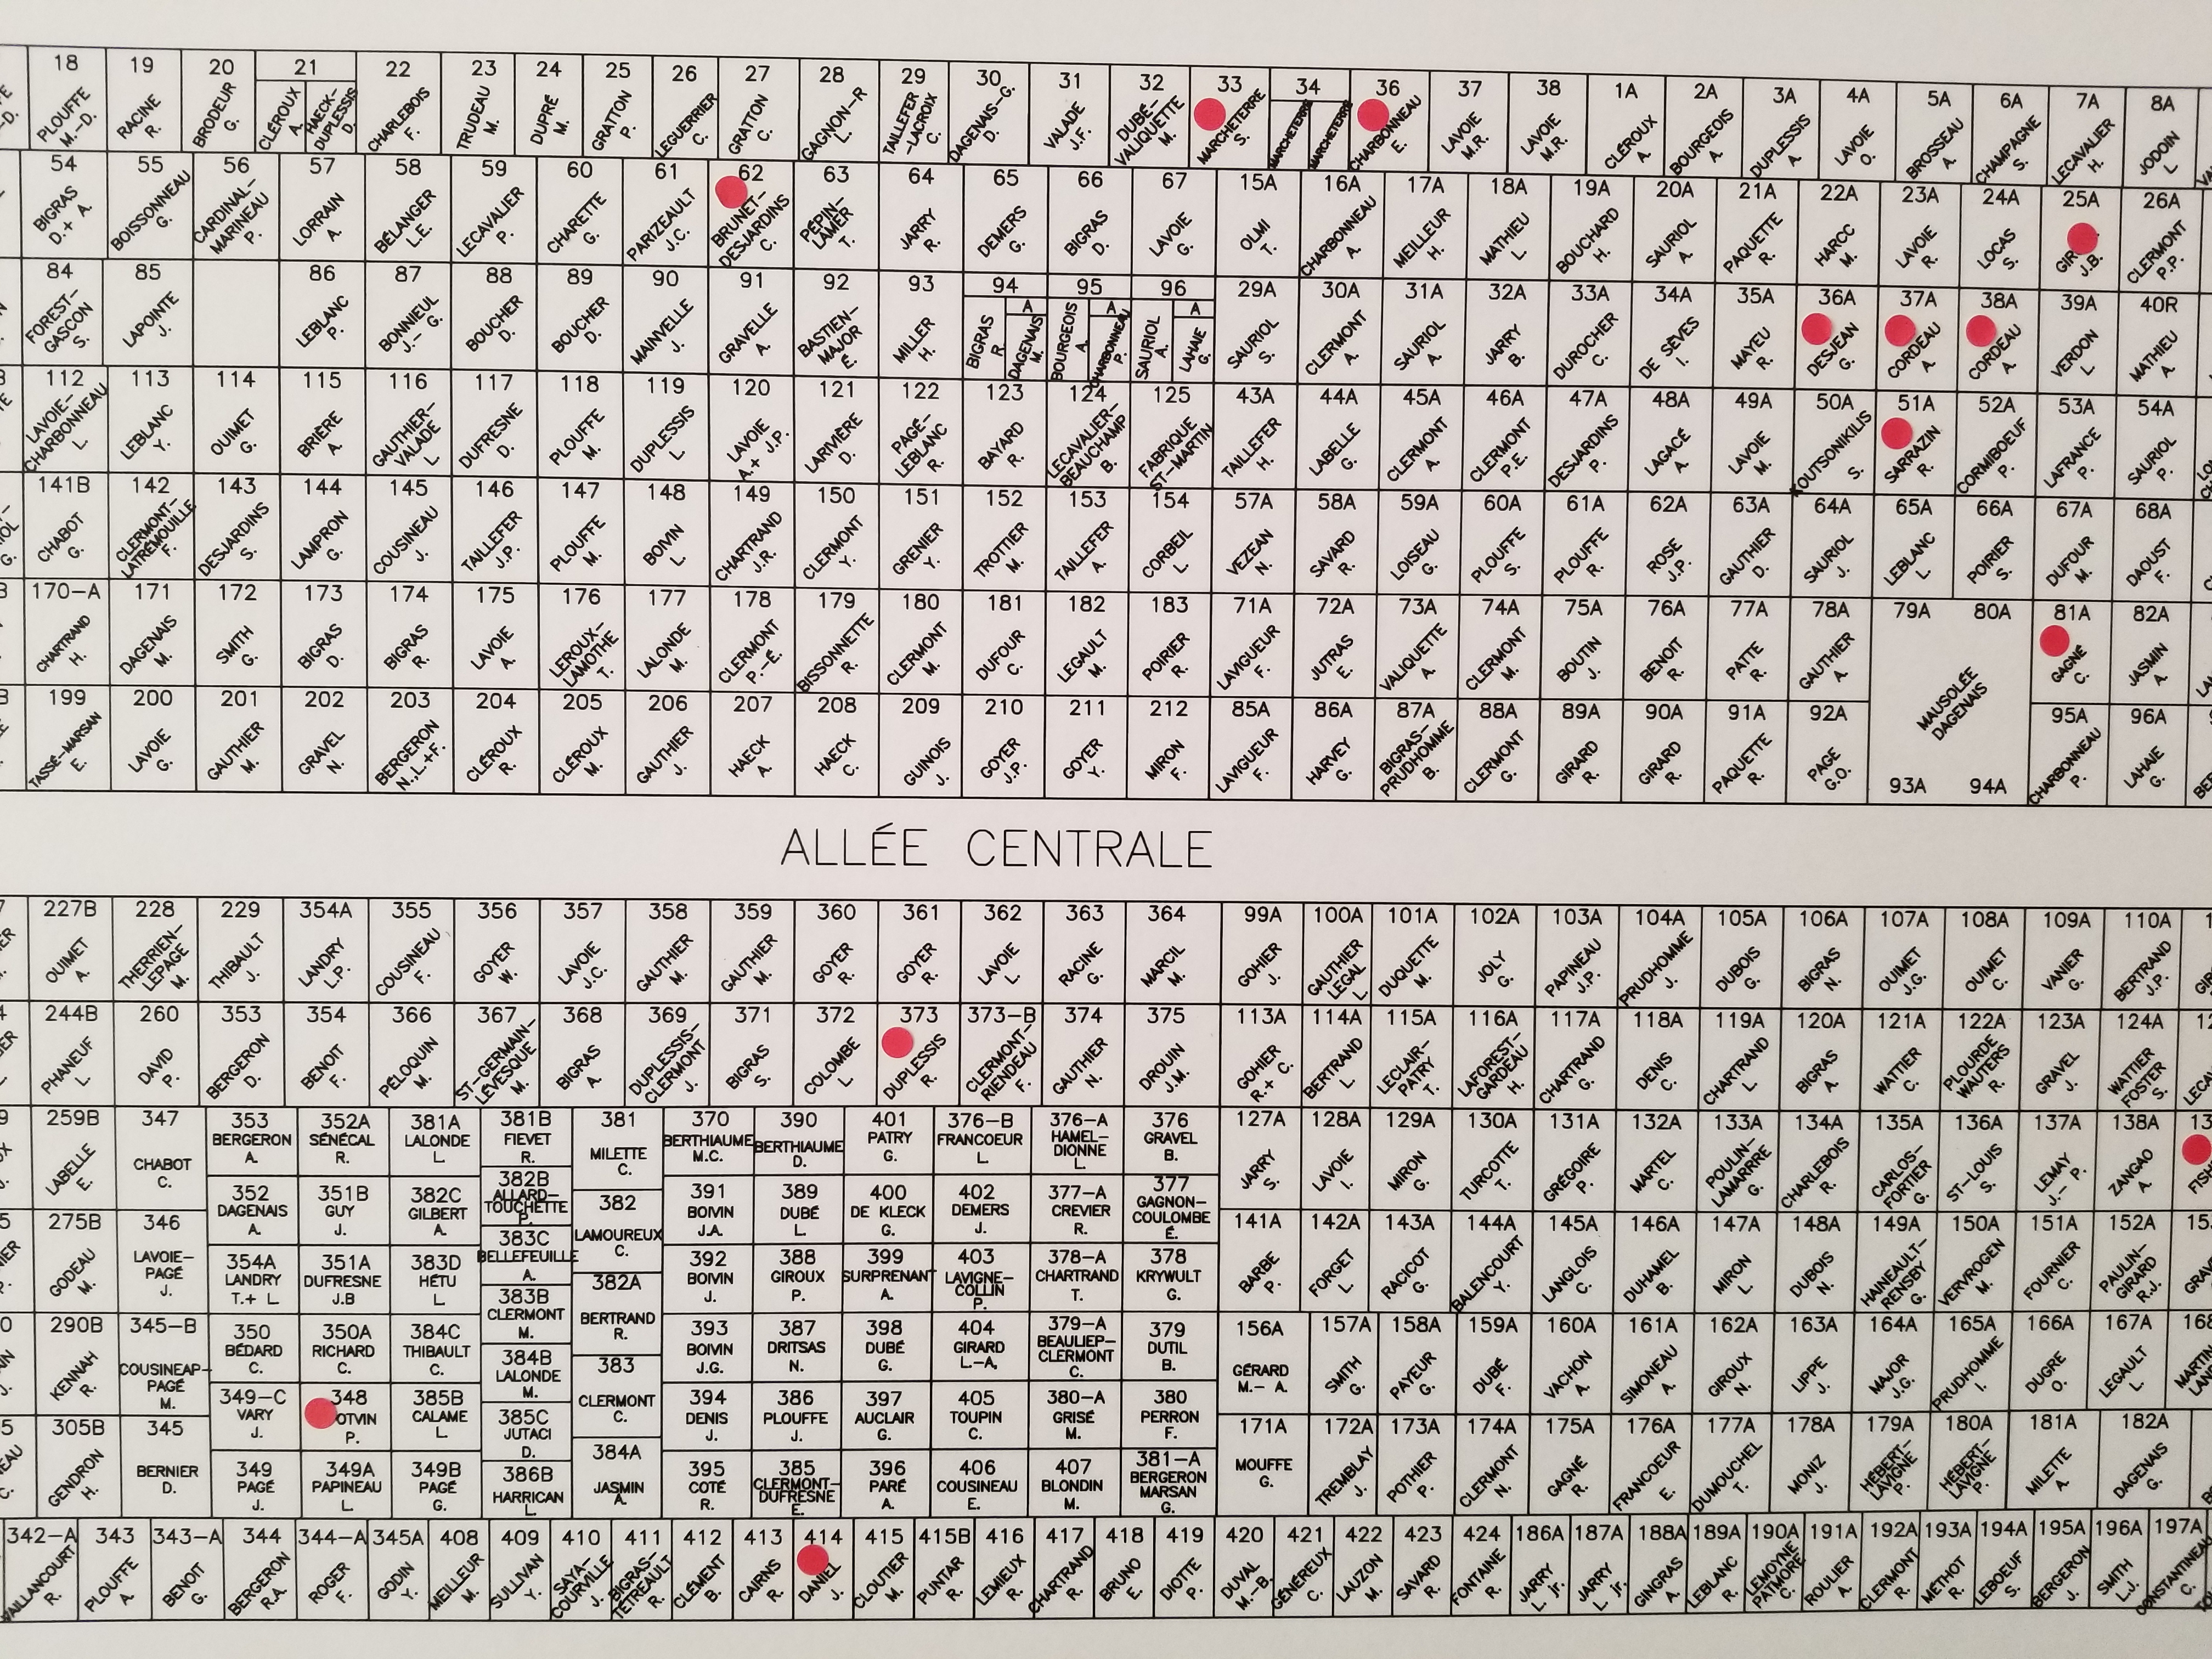 18 19 20 21 22 23 24 25 26 27 28 29 30 31 32 33 34 36 37 38 1A 2A 3A 4A 5A 6A 7A 8A
PLOUFFE M.-D. RACINE R. BRODEUR G. CLÉROUX A. HAECK-DUPLESSIS D. CHARLEBOIS F. TRUDEAU M. DUPRÉ M. GRATTON P. LEGUERRIER C. GRATTON C. GAGNON-R L. TAILLEFER-LACROIX C. DAGENAIS-G. D. VALADE J.F. DUBÉ-VALIQUETTE M. MARCHETERRE S. MARCHETERRE MARCHETERRE CHARBONNEAU E. LAVOIE M.R. LAVOIE M.R. CLÉROUX A. BOURGEOIS A. DUPLESSIS A. LAVOIE O. BROSSEAU A. CHAMPAGNE S. LECAVALIER H. JODOIN L.
54 55 56 57 58 59 60 61 62 63 64 65 66 67 15A 16A 17A 18A 19A 20A 21A 22A 23A 24A 25A 26A
BIGRAS D.+ A. BOISSONNEAU G. CARDINAL-MARINEAU P. LORRAIN A. BÉLANGER L.E. LECAVALIER P. CHARETTE G. PARIZEAULT J.C. BRUNET-DESJARDINS C. PÉPIN-LAMER T. JARRY R. DEMERS G. BIGRAS D. LAVOIE G. OLMI T. CHARBONNEAU A. MEILLEUR H. MATHIEU L. BOUCHARD H. SAURIOL A. PAQUETTE R. HARCC M. LAVOIE R. LOCAS S. J.B. CLERMONT P.P.
84 85 86 87 88 89 90 91 92 93 94 95 96 29A 30A 31A 32A 33A 34A 35A 36A 37A 38A 39A 40R
FOREST-GASCON S. LAPOINTE J. LEBLANC P. BONNIEUL J.- G. BOUCHER D. BOUCHER D. MAINVELLE J. GRAVELLE A. BASTIEN-MAJOR É. MILLER H. BIGRAS R. A DAGENAIS M. BOURGEOIS A. A CHARBONNEAU P. SAURIOL A. A LAHAIE G. SAURIOL S. CLERMONT A. SAURIOL A. JARRY B. DUROCHER C. DE SÈVES I. MAYEU R. DESJEAN G. CORDEAU A. CORDEAU A. VERDON L. MATHIEU A.
112 113 114 115 116 117 118 119 120 121 122 123 124 125 43A 44A 45A 46A 47A 48A 49A 50A 51A 52A 53A 54A
LAVOIE-CHARBONNEAU L. LEBLANC Y. OUIMET G. BRIÈRE A. GAUTHIER-VALADE L. DUFRESNE D. PLOUFFE M. DUPLESSIS L. LAVOIE A.+ J.P. LARIVIÈRE D. PAGÉ-LEBLANC R. BAYARD R. LECAVALIER-BEAUCHAMP B. FABRIQUE ST-MARTIN TAILLEFER H. LABELLE G. CLERMONT A. CLERMONT P.E. DESJARDINS P. LAGACÉ A. LAVOIE M. KOUTSONIKILIS S. SARRAZIN R. CORMIBOEUF P. LAFRANCE P. SAURIOL P.
141B 142 143 144 145 146 147 148 149 150 151 152 153 154 57A 58A 59A 60A 61A 62A 63A 64A 65A 66A 67A 68A
CHABOT G. CLERMONT-LATREMOUILLE F. DESJARDINS S. LAMPRON G. COUSINEAU J. TAILLEFER J.P. PLOUFFE M. BOIVIN L. CHARTRAND J.R. CLERMONT Y. GRENIER Y. TROTTIER M. TAILLEFER A. CORBEIL L. VEZEAN N. SAVARD R. LOISEAU G. PLOUFFE S. PLOUFFE R. ROSE J.P. GAUTHIER D. SAURIOL J. LEBLANC L. POIRIER S. DUFOUR M. DAOUST F.
170-A 171 172 173 174 175 176 177 178 179 180 181 182 183 71A 72A 73A 74A 75A 76A 77A 78A 79A 80A 81A 82A
CHARTRAND H. DAGENAIS M. SMITH G. BIGRAS D. BIGRAS R. LAVOIE A. LEROUX-LAMOTHE T. LALONDE M. CLERMONT P.-É. BISSONNETTE R. CLERMONT M. DUFOUR C. LEGAULT M. POIRIER R. LAVIGUEUR F. JUTRAS E. VALIQUETTE A. CLERMONT M. BOUTIN J. BENOIT R. PATTE R. GAUTHIER A. MAUSOLÉE DAGENAIS GAGNÉ C. JASMIN A.
199 200 201 202 203 204 205 206 207 208 209 210 211 212 85A 86A 87A 88A 89A 90A 91A 92A 93A 94A 95A 96A
TASSÉ-MARSAN E. LAVOIE G. GAUTHIER M. GRAVEL N. BERGERON N.,L.+F. CLÉROUX R. CLÉROUX M. GAUTHIER J. HAECK A. HAECK C. GUINOIS J. GOYER J.P. GOYER Y. MIRON F. LAVIGUEUR F. HARVEY G. BIGRAS-PRUDHOMME B. CLERMONT G. GIRARD R. GIRARD R. PAQUETTE R. PAGE G.O. CHARBONNEAU P. LAHAIE G.
ALLÉE CENTRALE
227B 228 229 354A 355 356 357 358 359 360 361 362 363 364 99A 100A 101A 102A 103A 104A 105A 106A 107A 108A 109A 110A
OUIMET A. THERRIEN-LEPAGE M. THIBAULT J. LANDRY L.P. COUSINEAU F. GOYER W. LAVOIE J.C. GAUTHIER M. GAUTHIER M. GOYER R. GOYER R. LAVOIE L. RACINE G. MARCIL M. GOHIER J. GAUTHIER LEGAL L. DUQUETTE M. JOLY G. PAPINEAU J.P. PRUDHOMME J. DUBOIS G. BIGRAS N. OUIMET J.G. OUIMET C. VANIER G. BERTRAND J.P.
244B 260 353 354 366 367 368 369 371 372 373 373-B 374 375 113A 114A 115A 116A 117A 118A 119A 120A 121A 122A 123A 124A
PHANEUF L. DAVID P. BERGERON D. BENOIT F. PÉLOQUIN M. ST-GERMAIN-LÉVESQUE M. BIGRAS A. DUPLESSIS-CLERMONT J. BIGRAS S. COLOMBE L. DUPLESSIS R. CLERMONT-RIENDEAU F. GAUTHIER N. DROUIN J.M. GOHIER R.+ C. BERTRAND L. LECLAIR-PATRY T. LAFOREST-GARDEAU H. CHARTRAND G. DENIS C. CHARTRAND L. BIGRAS A. WATTIER C. PLOURDE WAUTERS R. GRAVEL J. WATTIER FOSTER S.
259B 347 353 352A 381A 381B 381 370 390 401 376-B 376-A 376 127A 128A 129A 130A 131A 132A 133A 134A 135A 136A 137A 138A
LABELLE E. CHABOT C. BERGERON A. SÉNÉCAL R. LALONDE L. FIEVET R. MILETTE C. BERTHIAUME M.C. BERTHIAUME D. PATRY G. FRANCOEUR L. HAMEL-DIONNE L. GRAVEL B. JARRY S. LAVOIE I. MIRON G. TURCOTTE T. GRÉGOIRE P. MARTEL C. POULIN-LAMARRE G. CHARLEBOIS R. CARLOS-FORTIER G. ST-LOUIS S. LEMAY J.- P. ZANGAO A.
352 351B 382C 382B 382 391 389 400 402 377-A 377
DAGENAIS A. GUY J. GILBERT A. ALLARD-TOUCHETTE P. LAMOUREUX C. BOIVIN J.A. DUBÉ L. DE KLECK G. DEMERS J. CREVIER R. GAGNON-COULOMBE É.
275B 346 354A 351A 383D 383C 382A 392 388 399 403 378-A 378 141A 142A 143A 144A 145A 146A 147A 148A 149A 150A 151A 152A
GODEAU M. LAVOIE-PAGÉ J. LANDRY T.+ L. DUFRESNE J.B HÉTU L. BELLEFEUILLE A. BERTRAND R. BOIVIN J. GIROUX P. SURPRENANT A. LAVIGNE-COLLIN P. CHARTRAND T. KRYWULT G. BARBE P. FORGET L. RACICOT G. BALENCOURT Y. LANGLOIS C. DUHAMEL B. MIRON L. DUBOIS N. HAINEAULT-RENSBY G. VERVROGEN M. FOURNIER C. PAULIN-GIRARD R.J.
383B
CLERMONT M.
290B 345-B 350 350A 384C 384B 383 393 387 398 404 379-A 379 156A 157A 158A 159A 160A 161A 162A 163A 164A 165A 166A 167A
KENNAH R. COUSINEAP-PAGÉ M. BÉDARD C. RICHARD C. THIBAULT C. LALONDE M. CLERMONT C. BOIVIN J.G. DRITSAS N. DUBÉ G. GIRARD L.-A. BEAULIEP-CLERMONT C. DUTIL B. GÉRARD M.- A. SMITH G. PAYEUR G. DUBÉ F. VACHON A. SIMONEAU A. GIROUX N. LIPPE J. MAJOR J.G. PRUDHOMME I. DUGRE O. LEGAULT L.
349-C 348 385B 385C 394 386 397 405 380-A 380
VARY J. OTVIN P. CALAME L. JUTACI D. DENIS J. PLOUFFE J. AUCLAIR G. TOUPIN C. GRISÉ M. PERRON F.
305B 345 349 349A 349B 386B 384A 395 385 396 406 407 381-A 171A 172A 173A 174A 175A 176A 177A 178A 179A 180A 181A 182A
GENDRON H. BERNIER D. PAGÉ J. PAPINEAU L. PAGÉ G. HARRICAN L. JASMIN A. COTÉ R. CLERMONT-DUFRESNE E. PARÉ A. COUSINEAU E. BLONDIN M. BERGERON MARSAN G. MOUFFE G. TREMBLAY J. POTHIER P. CLERMONT N. GAGNÉ R. FRANCOEUR E. DUMOUCHEL T. MONIZ J. HÉBERT-LAVIGNE P. HÉBERT-LAVIGNE P. MILETTE A. DAGENAIS G.
342-A 343 343-A 344 344-A 345A 408 409 410 411 412 413 414 415 415B 416 417 418 419 420 421 422 423 424 186A 187A 188A 189A 190A 191A 192A 193A 194A 195A 196A 197A
VAILLANCOURT R. PLOUFFE A. BENOIT G. BERGERON R.A. ROGER F. GODIN Y. MEILLEUR M. SULLIVAN Y. SAYA-COURVILLE J. BIGRAS-TETREAULT R. CLÉMENT B. CAIRNS R. DANIEL J. CLOUTIER M. PUNTAR R. LEMIEUX R. CHARTRAND R. BRUNO E. DIOTTE P. DUVAL M.-B. GÉNÉREUX C. LAUZON M. SAVARD R. FONTAINE R. JARRY L. Jr. JARRY L. Jr. GINGRAS A. LEBLANC R. LEMOYNE PATMORE C. ROULIER A. CLERMONT R. METHOT R. LEBOEUF S. BERGERON J. SMITH L.J. CONSTANTINEAU C.